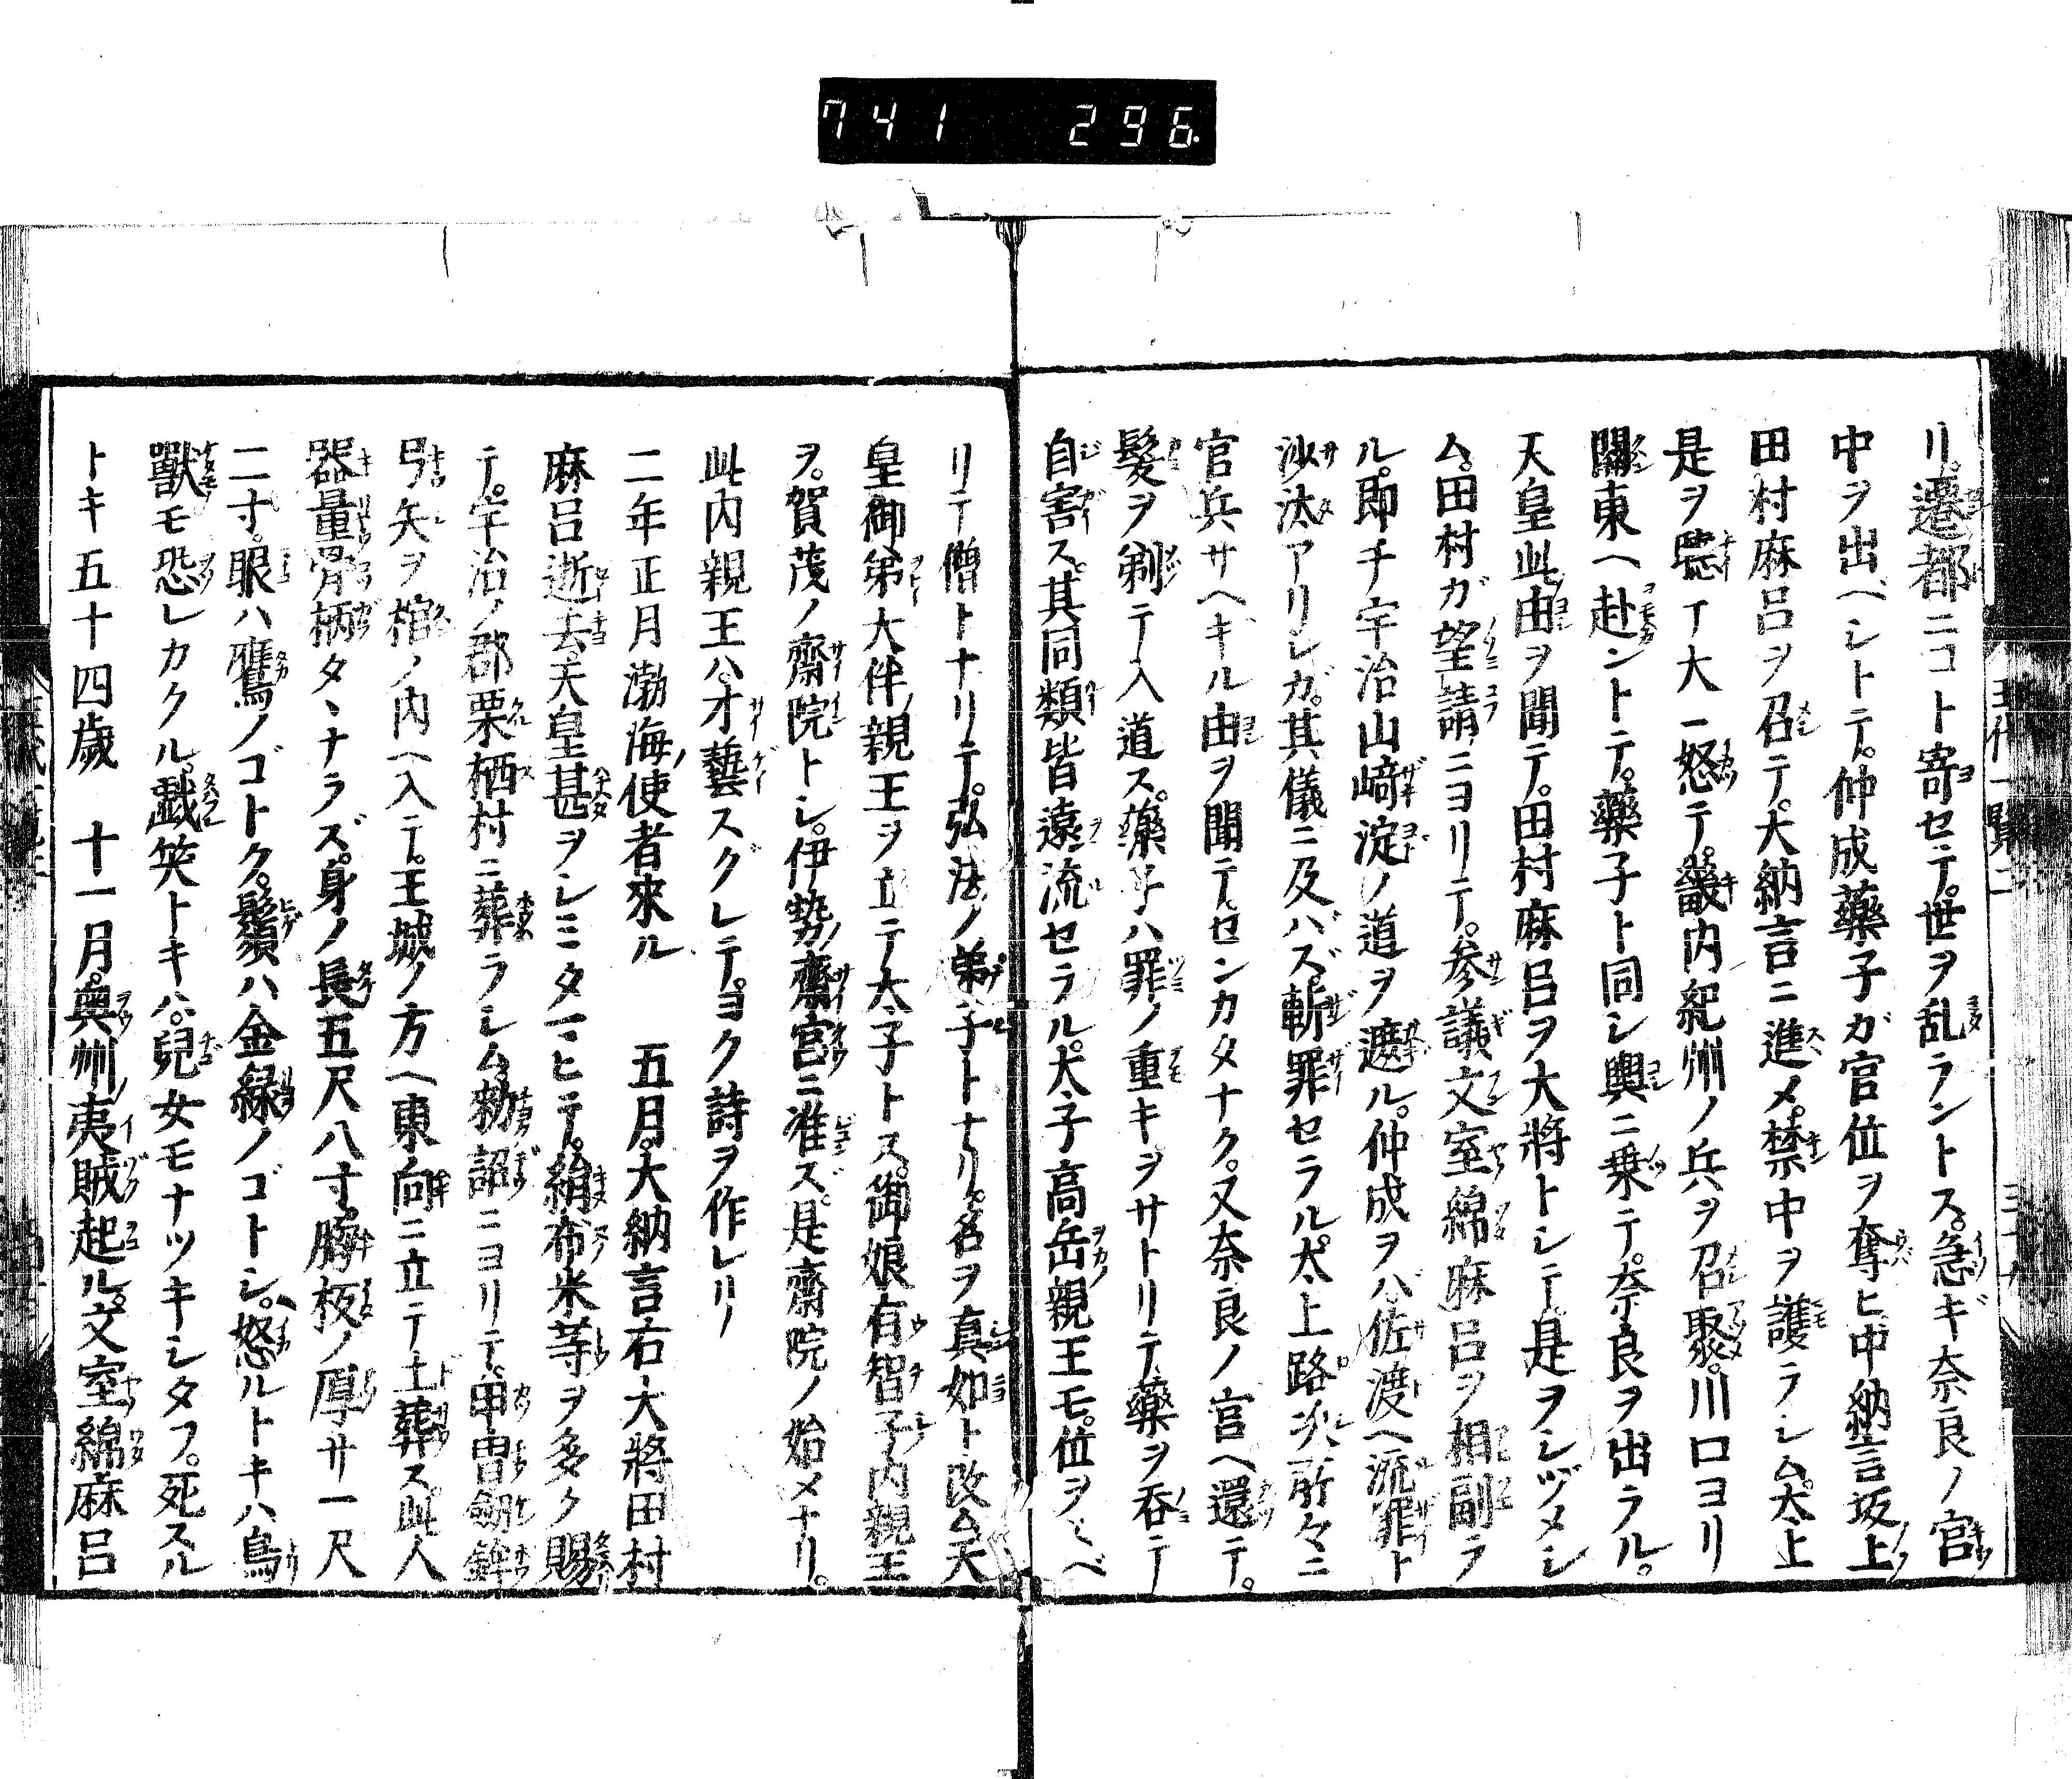 741 296
リ。遷都ニコト寄セテ。世ヲ乱ラントス。急ギ奈良ノ宮
中ヲ出ベシトテ。仲成藥子ガ官位ヲ奪ヒ中納言坂上
田村麻呂ヲ召テ。大納言ニ進メ。禁中ヲ護ラシム。太上
是ヲ聴テ大ニ怒テ。畿内紀州ノ兵ヲ召聚。川口ヨリ
關東ヘ赴ントテ。藥子ト同シ輿ニ乗テ。奈良ヲ出ラル。
天皇此由ヲ聞テ。田村麻呂ヲ大將トシテ是ヲシヅメシ
ム。田村ガ望請ニヨリテ。参議文室綿麻呂ヲ相副ラ
ル。即チ宇治山﨑淀ノ道ヲ遮ル。仲成ヲバ。佐渡ヘ流罪ト
沙汰アリシガ。其儀ニ及バズ斬罪セラル。太上路次所々ニ
官兵サヘギル由ヲ聞テ。センカタナク。又奈良ノ宮ヘ還テ。
髮ヲ剃テ入道ス。藥子ハ罪ノ重キヲサトリテ。藥ヲ呑テ
自害ス。其同類皆遠流セラル。太子高岳親王モ。位ヲスベ
リテ僧トナリテ。弘法ノ弟子トナリ。名ヲ真如ト改ム。天
皇御弟大伴親王ヲ立テ太子トス。御娘有智子内親王
ヲ。賀茂ノ齋院トシ。伊勢ノ齋宮ニ准ズ。是齋院ノ始メナリ。
此内親王ハ。才藝スグレテ。ヨク詩ヲ作レリ
二年正月渤海ノ使者來ル 五月。大納言右大將田村
麻呂逝去。天皇甚ヲシミタマヒテ。絹布米等ヲ多ク賜
テ。宇治ノ郡栗栖村ニ葬ラシム。勅詔ニヨリテ。甲冑劔鉾
弓矢ヲ棺ノ内ヘ入テ。王城ノ方ヘ東向ニ立テ土葬ス。此人
器量骨柄タヽナラズ。身ノ長五尺八寸。胸板ノ厚サ一尺
二寸。眼ハ鷹ノゴトク。鬚ハ金線ノゴトシ。怒ルトキハ鳥
獸モ恐レカクル。戯笑トキハ。兒女モナツキシタフ。死スル
トキ五十四歳 十一月。奥州ノ夷賊起ル。文室綿麻呂